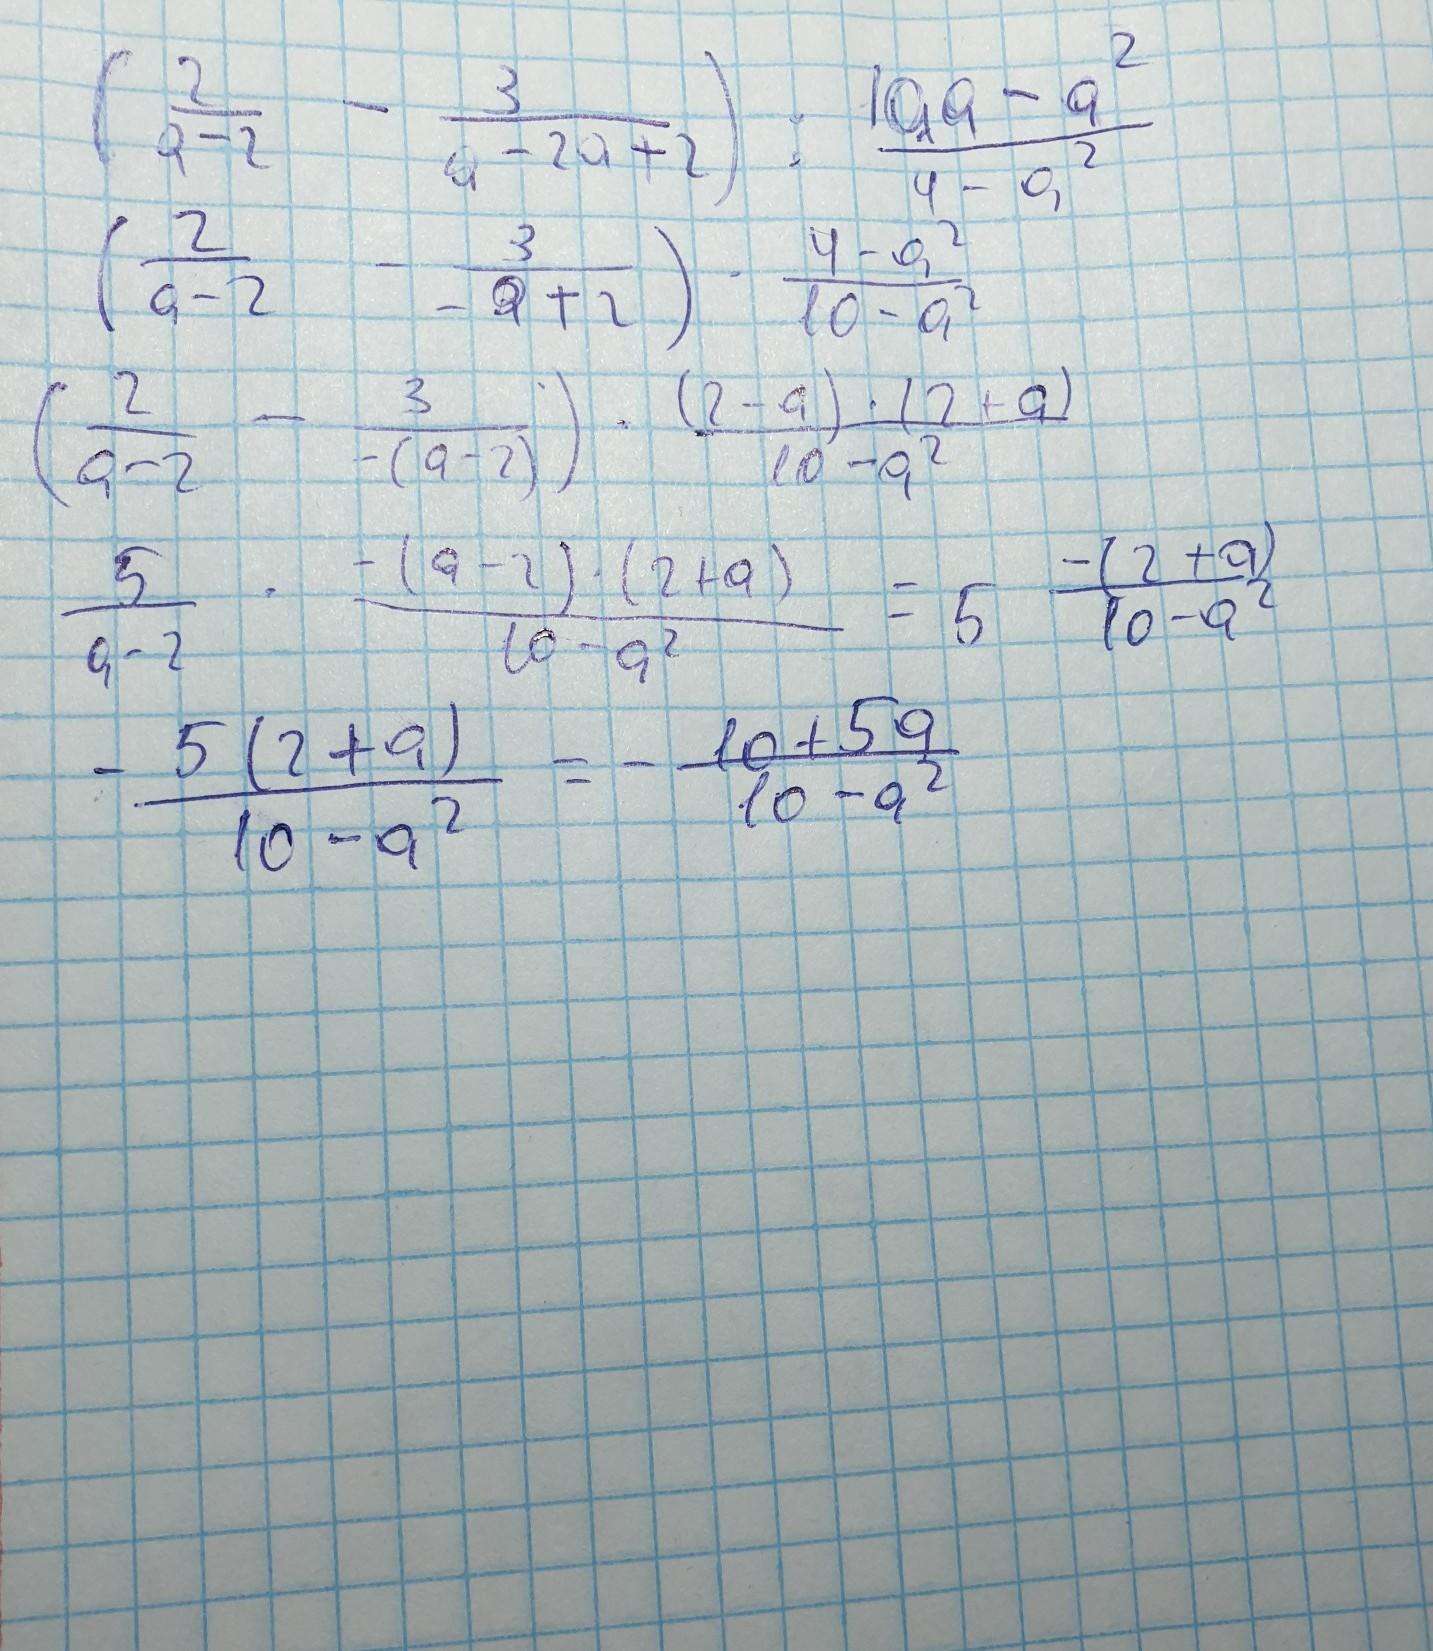 ( 2/(a-2) - 3/(a-2a+2) ) : (10a-a²)/(4-a²)
( 2/(a-2) - 3/(-a+2) ) · (4-a²)/(10-a²)
( 2/(a-2) - 3/(-(a-2)) ) · ((2-a)·(2+a))/(10-a²)
5/(a-2) · (-(a-2)·(2+a))/(10-a²) = 5 (-(2+a))/(10-a²)
- (5(2+a))/(10-a²) = - (10+5a)/(10-a²)